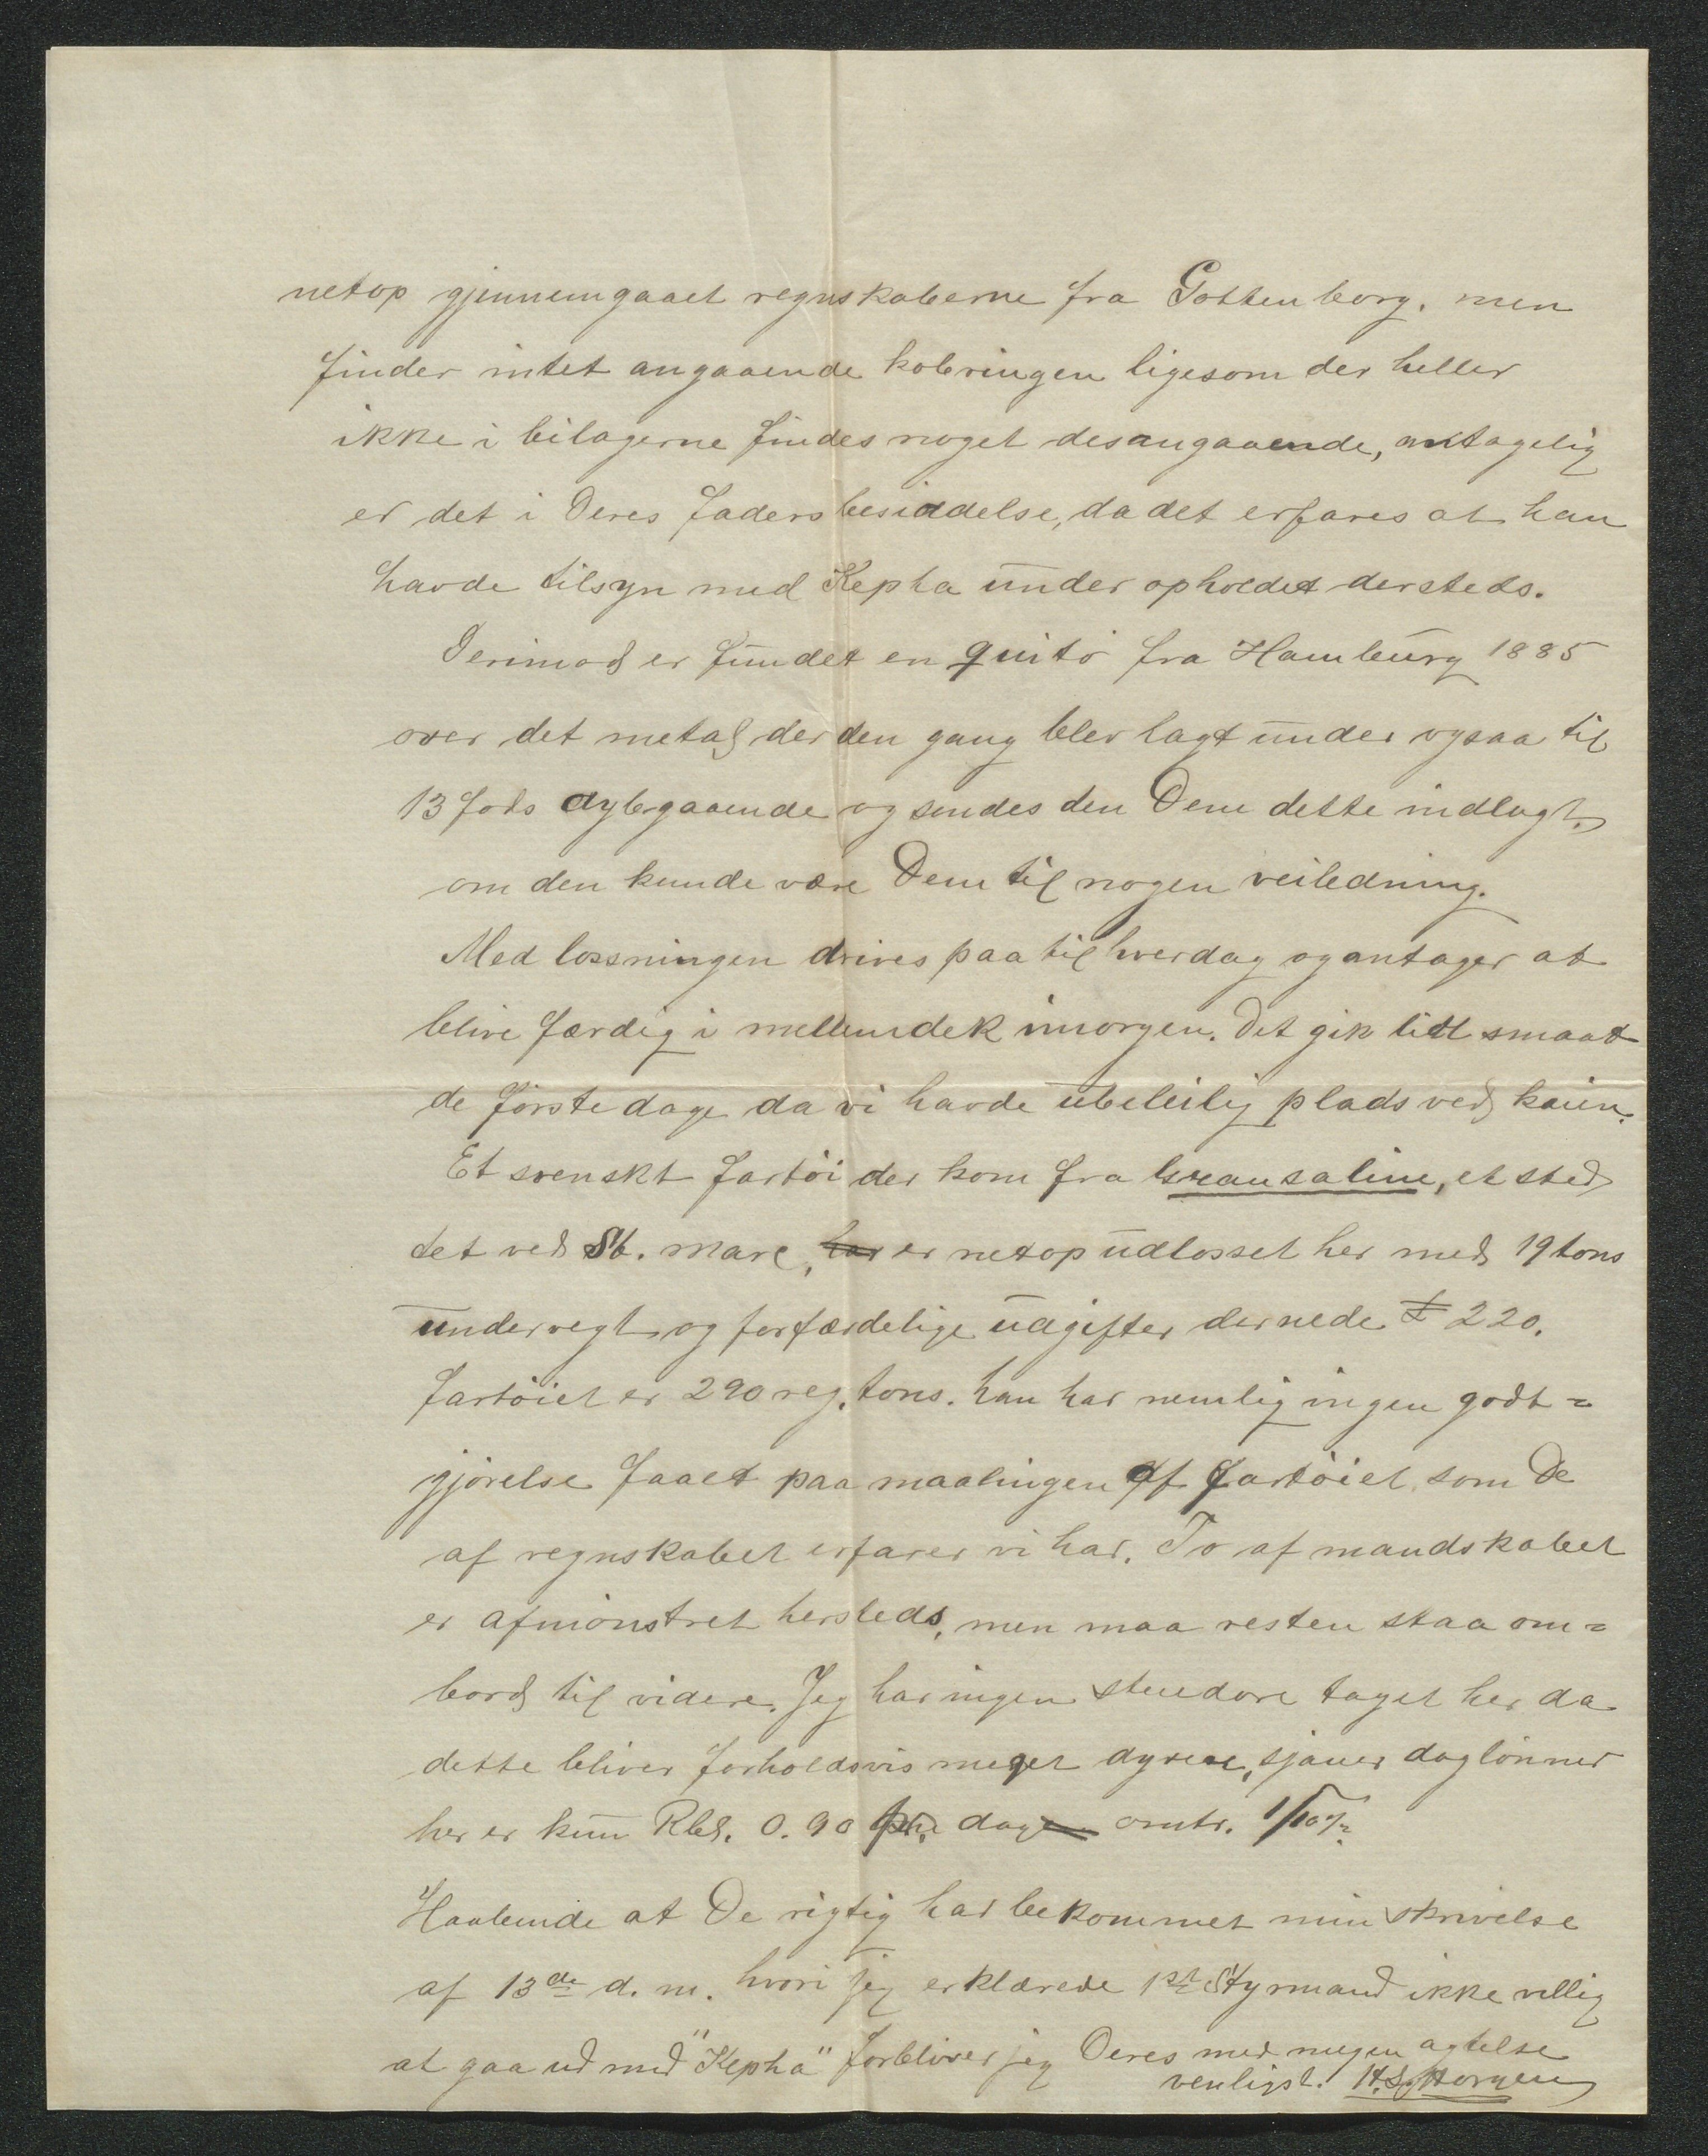 netop gjennemgaaet regnskaberne fra Gottenborg. men
finder intet angaaende kobringen ligesom der heller
ikke i bilagerne findes noget desangaaende, antagelig
er det i Deres faders besiddelse, da det erfares at han
havde tilsyn med Kepha under opholdet dersteds.
Derimod er fundet en quito fra Hamburg 1885
over det metal der den gang blev lagt under ogsaa til
13 fods dybgaaende og sendes den Dem dette indlagt.
om den kunde være Dem til nogen veiledning.
Med lossningen drives paa til hverdag og antager at
blive færdig i mellemdek imorgen. Det gik lidt smaat
de förste dage da vi havde ubeleilig plads ved kaien.
Et svenskt fartöi der kom fra Gransaline, et sted
det ved St. Marc, har er netop udlosset her med 19 tons
undervegt og forfærdelige udgifter dernede £ 220.
fartöiet er 290 reg. tons. han har nemlig ingen godt=
gjörelse faaet paa maalingen af fartöiet som De
af regnskabet erfarer vi har. To af mandskabet
er afmönstret hersteds, men maa resten staa om=
bord til videre. Jeg har ingen stuedore taget her da
dette bliver forholdsvis meget dyrere, sjauer daglönner
her er kun Rbl. 0.90 pr. dagen omtr.
Haabende at De rigtig har bekommet min skrivelse
af 13de d. m. hvori jeg erklærede 1st Styrmand ikke villig
at gaa ud med "Kepha" forbliver jeg Deres med megen agtelse
venligst. H. Horgen